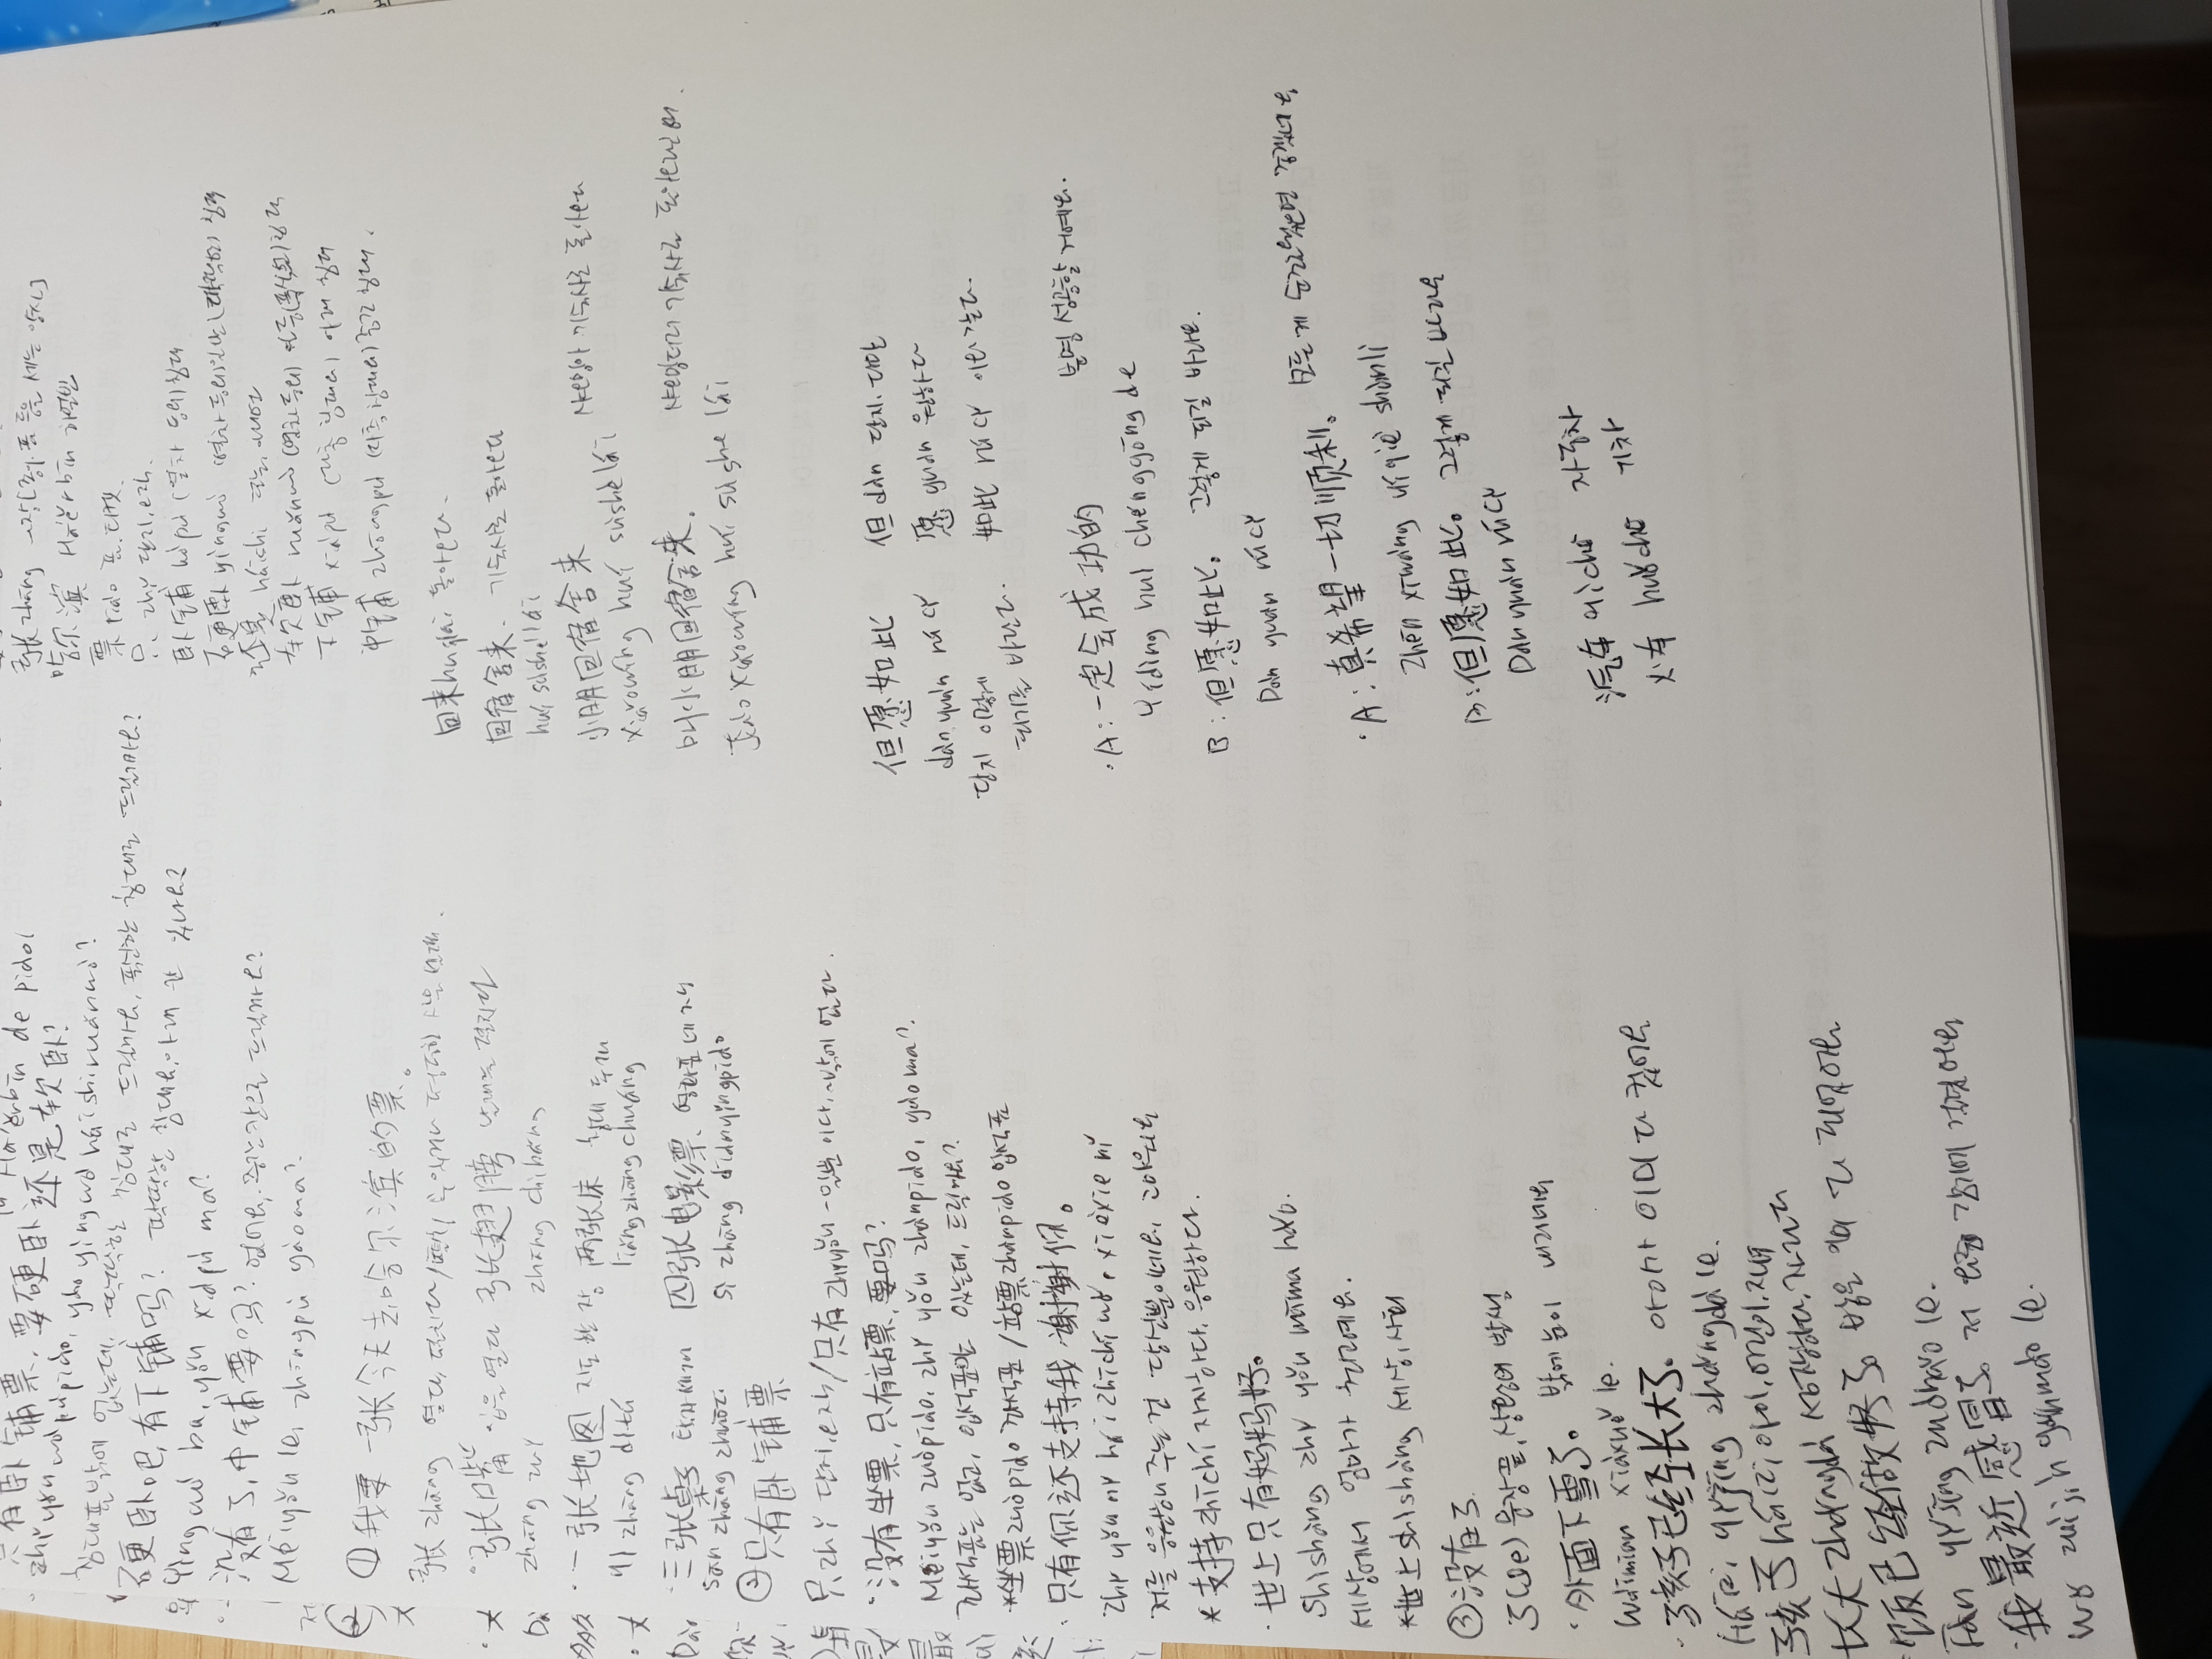 只有卧铺票,要硬卧还是软卧?
Zhǐ yǒu wòpùpiào, yào yìngwò háishi ruǎnwò?
침대표밖에 없는데, 딱딱한 침대로 드릴까요, 푹신한 침대로 드릴까요?
硬卧吧,有下铺吗? 딱딱한 침대요, 아래 칸 있나요?
Yìngwò ba, yǒu xiàpù ma?
没有了,中铺要吗? 없어요, 중간칸으로 드릴까요?
Méiyǒu le, zhōngpù yào ma?
①我要一张今天去哈尔滨的票。
张 zhāng 열다, 펼치다/펼칠 수 있거나 평평한 것을 셀 때.
·张口嘴 입을 열다 张翅膀 날개를 펼치다
zhāng zuǐ zhāng chìbǎng
·一张地图 지도 한 장 两张床 침대 두개
yì zhāng dìtú liǎng zhāng chuáng
·三张桌子 탁자 세개 四张电影票. 영화표 네 장
sān zhāng zhuōzi. sì zhāng diànyǐngpiào
②只有卧铺票
只 zhǐ 단지, 오직/只有 zhǐyǒu ~일뿐이다, ~밖에 없다.
·没有坐票,只有站票,要吗?
Méiyǒu zuòpiào, zhǐ yǒu zhànpiào, yào ma?
좌석표는 없고, 입석표만 있는데, 드릴까요?
*坐票 zuòpiào 좌석표 /站票 zhànpiào 입석표
·只有你还支持我,谢谢你。
Zhǐ yǒu nǐ hái zhīchí wǒ, xièxie nǐ
저를 응원해 주는 건 당신뿐이네요, 고마워요
*支持 zhīchí 지지하다, 응원하다.
·世上只有妈妈好。
Shìshàng zhǐ yǒu māma hǎo.
세상에서 엄마가 최고예요.
*世上 shìshàng 세상, 사회
③没有了
了(le) 문장 끝, 상황의 발생
·外面下雪了。 밖에 눈이 내리네요
Wàimian xiàxuě le.
·孩子已经长大了。 아이가 이미 다 컸어요
Háizi yǐjīng zhǎngdà le.
孩子 háizi 아이, 어린이, 자녀
长大 zhǎngdà 성장하다, 자라다
·饭已经做好了。 밥은 이미 다 되었어요
Fàn yǐjīng zuòhǎo le.
·我最近感冒了。 저 요즘 감기에 걸렸어요
Wǒ zuìjìn gǎnmào le.
张 zhāng ~장[종이, 표 등을 세는 양사]
哈尔滨 Hā'ěrbīn 하얼빈
票 piào 표, 티켓.
只 zhǐ 단지, 오직.
卧铺 wòpù (열차 등의) 침대
硬卧 yìngwò (열차 등의) 일반(딱딱한) 침대
还是 háishi 또는, 아니면
软卧 ruǎnwò (열차 등의) 일등(푹신한) 침대
下铺 xiàpù (다층 침대의) 아래 침대
中铺 zhōngpù (다층 침대의) 중간 침대.
回来 huílái 돌아오다.
回宿舍来. 기숙사로 돌아오다
huí sùshè lái
小明回宿舍来 샤오밍이 기숙사로 돌아오다
Xiǎomíng huí sùshè lái
叫小明回宿舍来. 샤오밍더러 기숙사로 돌아오라고 해.
Jiào Xiǎomíng huí sùshè lái
但愿如此 但 dàn 단지, 다만
dàn yuàn rú cǐ 愿 yuàn 원하다
단지 이렇게 如此 rú cǐ 이와 같다.
되기를 바란다.
·A:一定会成功的 분명 성공할 거예요.
Yídìng huì chénggōng de
B:但愿如此。 그렇게 되길 바라요.
Dàn yuàn rú cǐ
·A:真希望一切顺利。 모든 게 순조로웠으면 좋겠네요
Zhēn xīwàng yíqiè shùnlì
B:但愿如此。 그렇게 되길 바라요
Dàn yuàn rú cǐ
汽车 qìchē 자동차
火车 huǒchē 기차